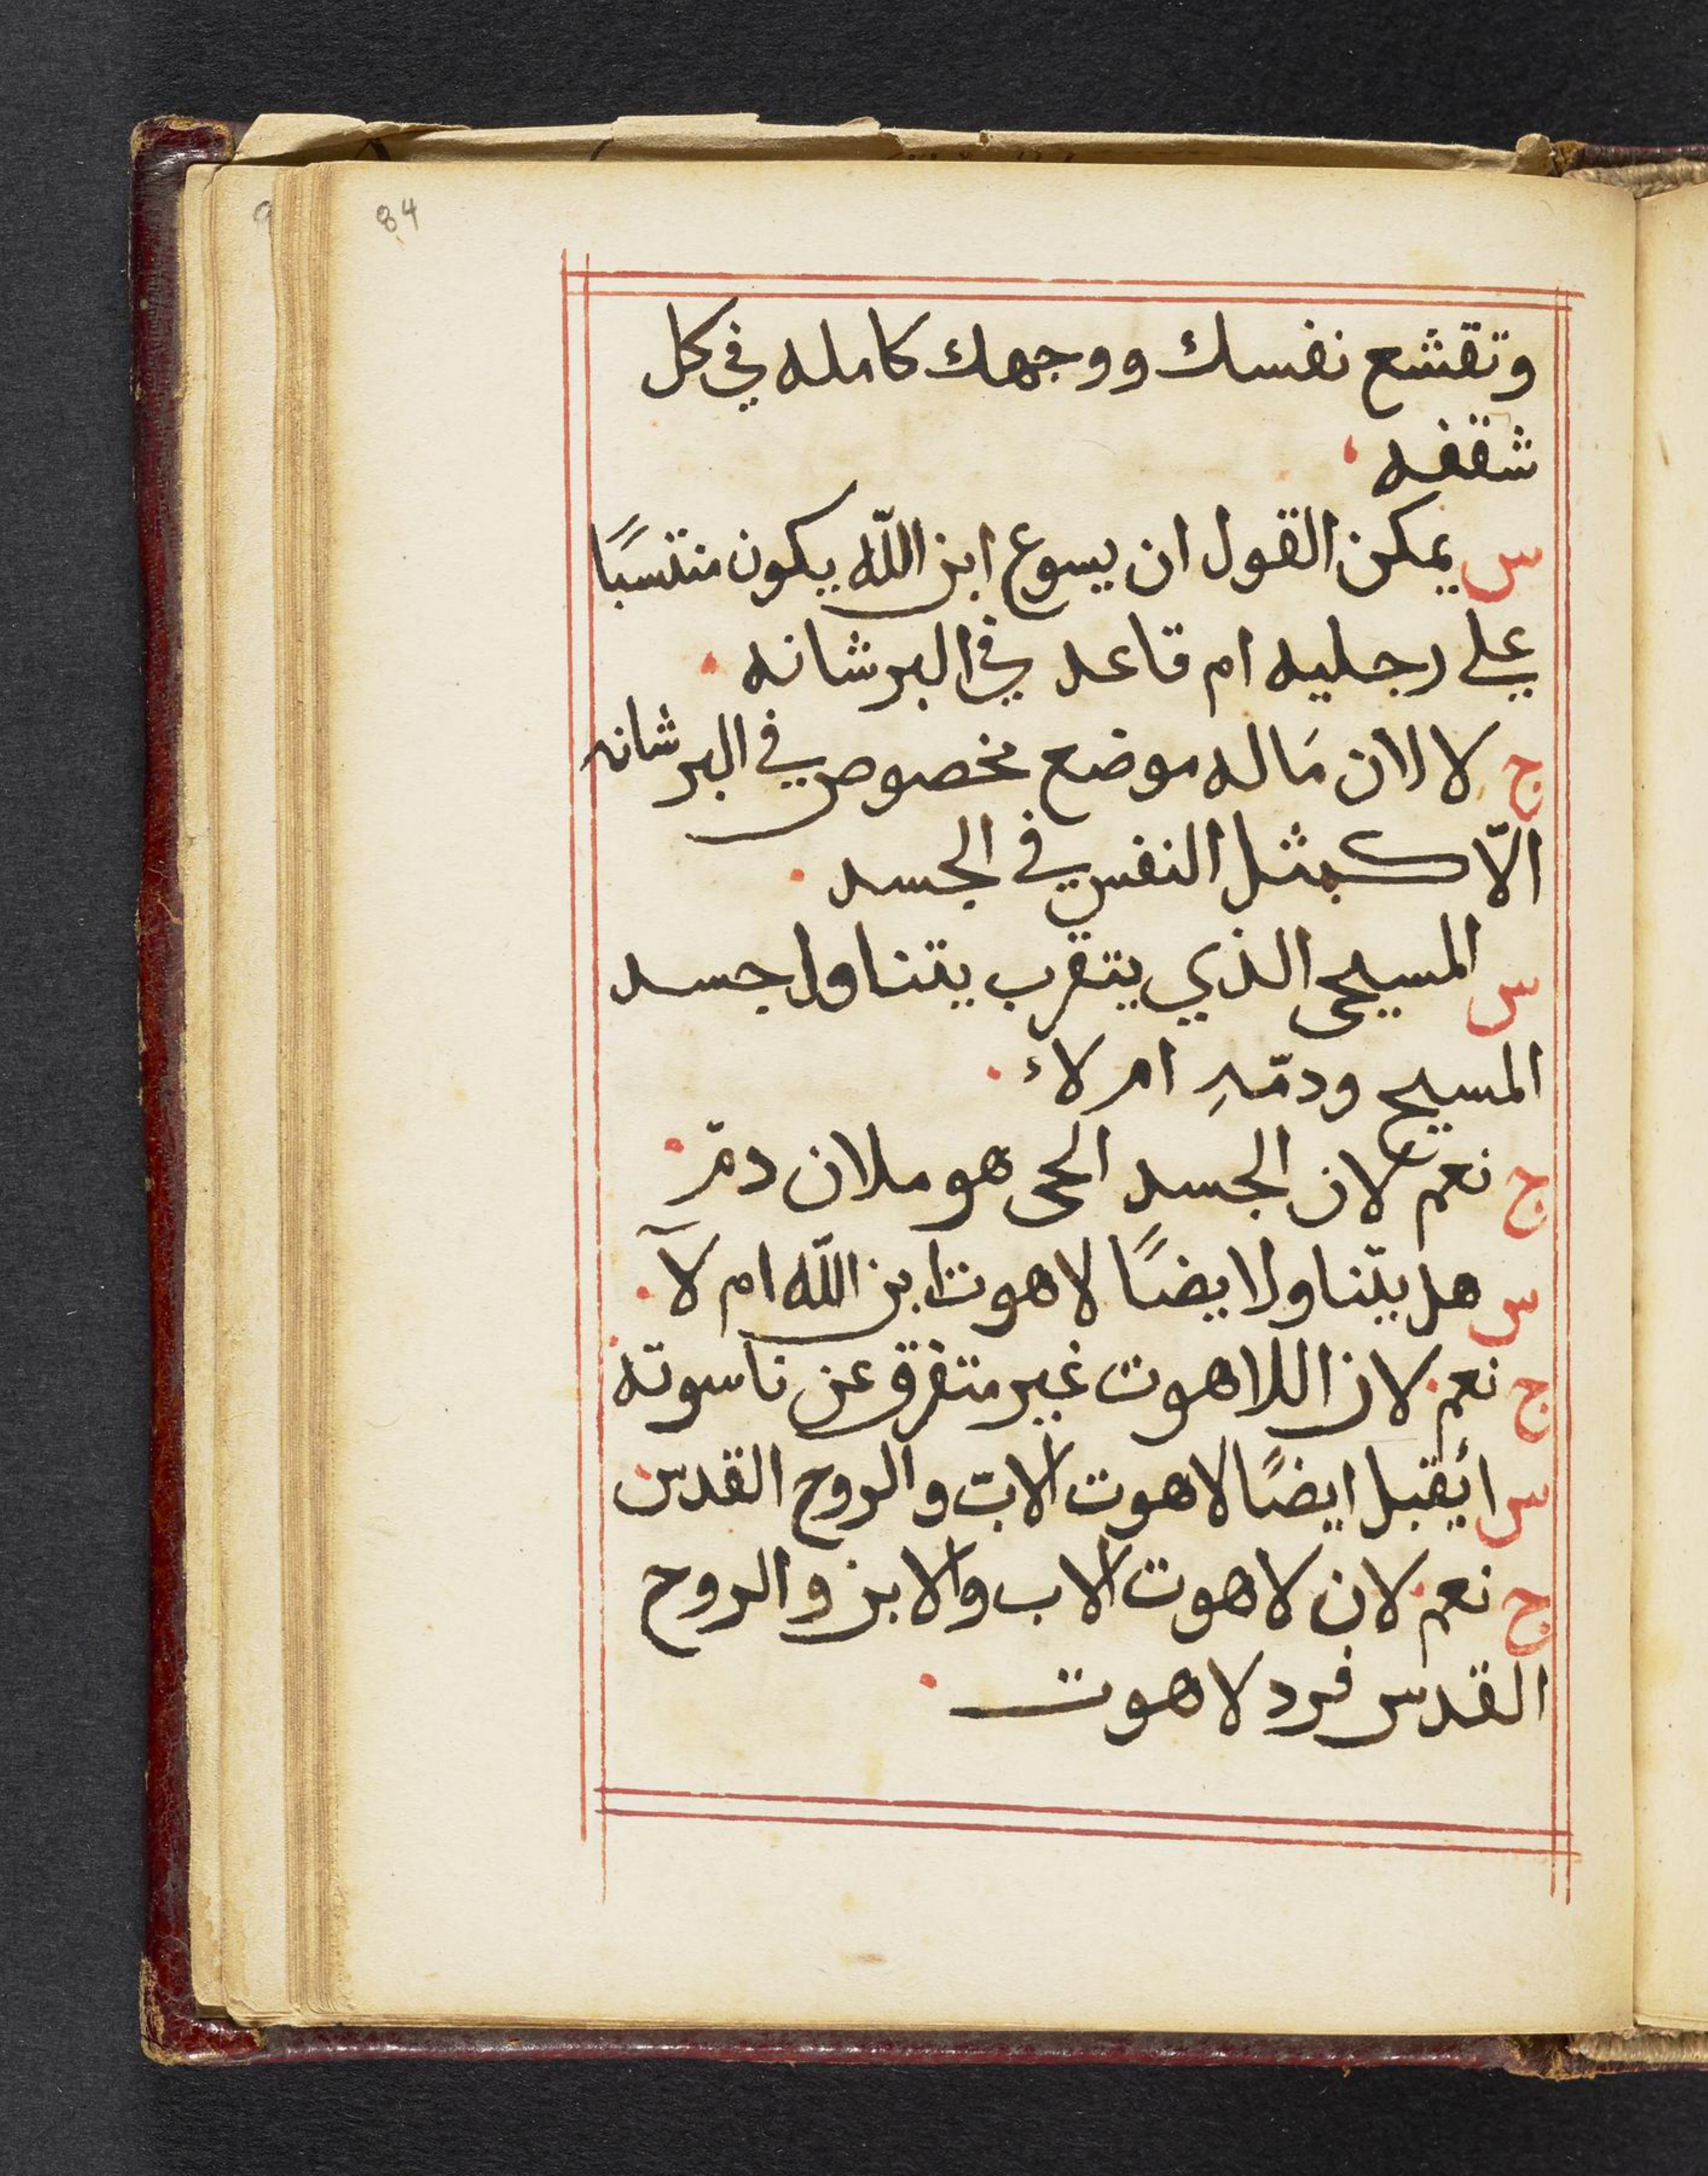 84
وتقشع نفسك ووجهك كامله في كل
شقفه
س يمكن القول ان يسوع ابن اللّه يكون منتسبًا
علي رجليه ام قاعد في البرشانه
ج لا لان مَاله موضع مخصوص في البرشانه
الّا كمثل النفس في الجسد
س المسيحى الذي يتقرب يتناول جسد
المسيح ودمّهِ ام لاء
ج نعم لان الجسد الحى هو ملان دمّ
س هل يتّناول ايضًا لاهوت ابن اللّه ام لآ
ج نعم لان اللاهوت غير متفرق عن ناسوته
س أيقبل ايضًا لاهوت الاب والروح القدس
ج نعم لان لاهوت الاب والابن والروح
القدس فرد لاهوت